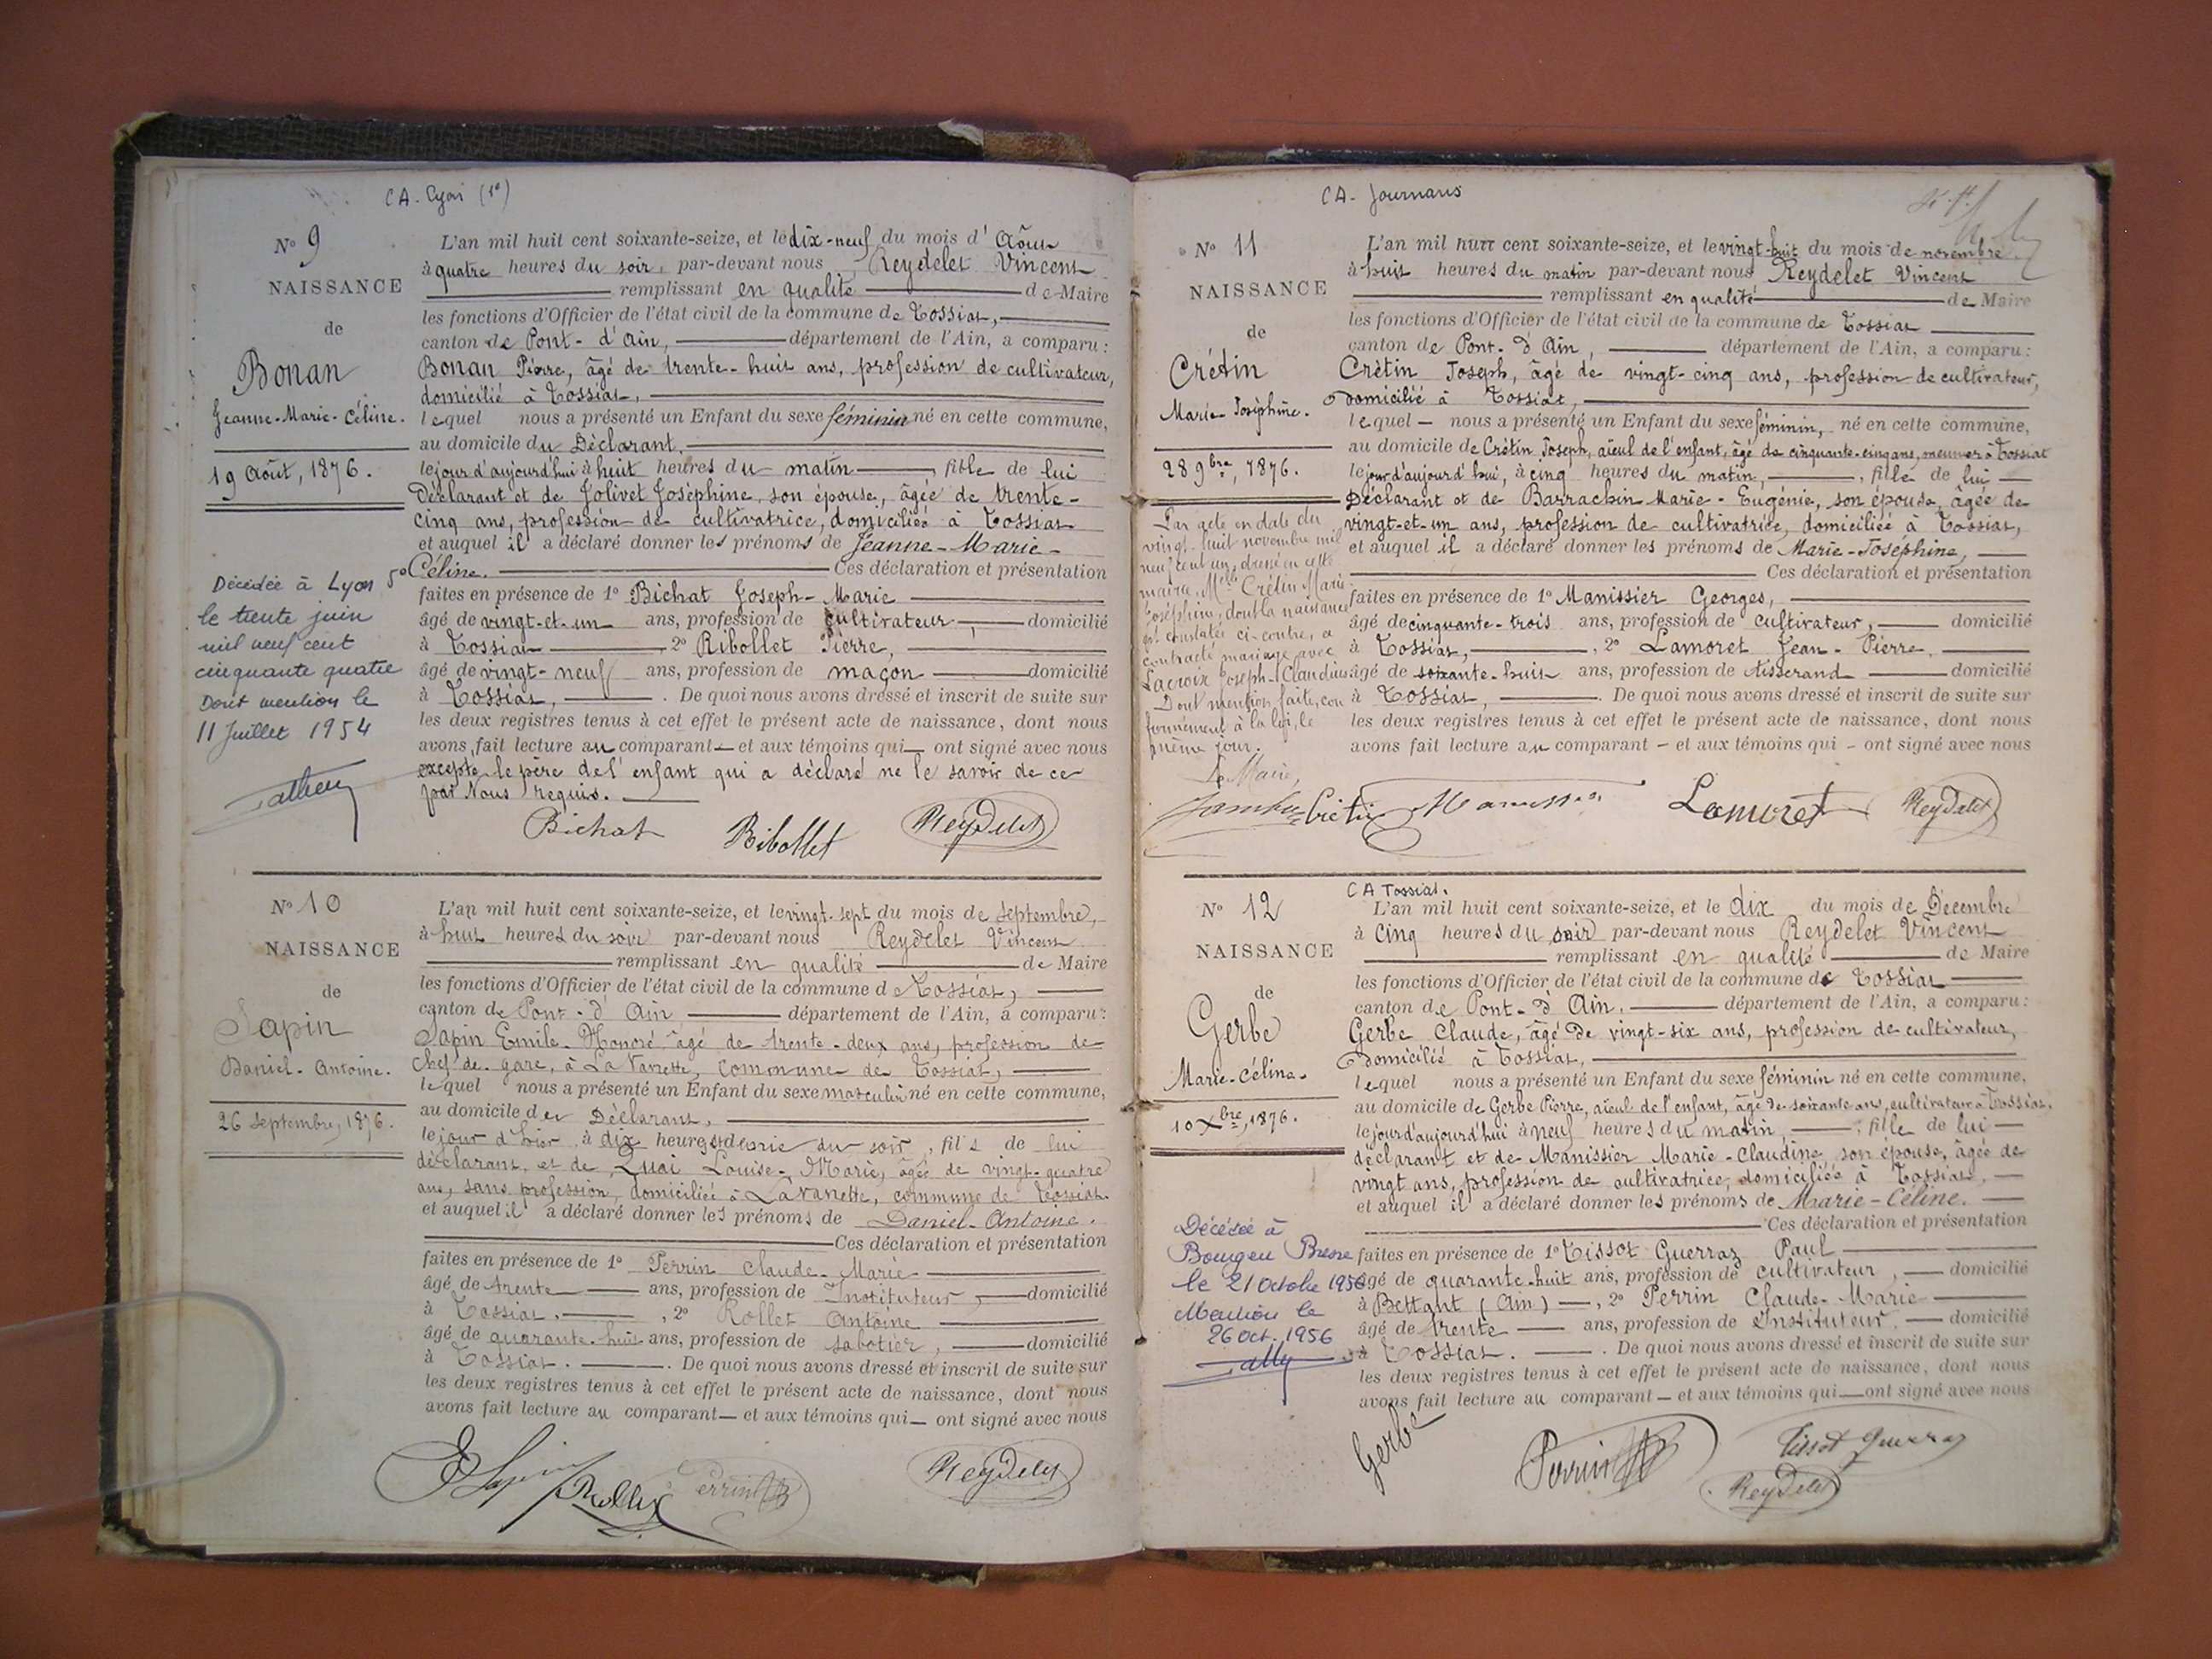 CA. Lyon (1e)
N° 9
NAISSANCE
de
Bonan
Jeanne-Marie-Céline.
19 Août, 1876.
Décédée à Lyon 5°
le trente juin
mil neuf cent
cinquante quatre
Dont mention le
11 Juillet 1954
L'an mil huit cent soixante-seize, et le dix-neuf du mois d'Août
à quatre heures du soir, par-devant nous Reydelet Vincent
remplissant en qualité de Maire
les fonctions d'Officier de l'état civil de la commune de Tossiat,
canton de Pont-d'Ain, département de l'Ain, a comparu :
Bonan Pierre, âgé de trente-huit ans, profession de cultivateur,
domicilié à Tossiat,
lequel nous a présenté un Enfant du sexe féminin né en cette commune,
au domicile du Déclarant,
le jour d'aujourd'hui à huit heures du matin, fille de lui
Déclarant et de Jolivet Joséphine, son épouse, âgée de trente-
cinq ans, profession de cultivatrice, domiciliée à Tossiat
et auquel il a déclaré donner les prénoms de Jeanne-Marie-
Céline. Ces déclaration et présentation
faites en présence de 1° Bichat Joseph-Marie
âgé de vingt-et-un ans, profession de cultivateur, domicilié
à Tossiat 2° Ribollet Pierre,
âgé de vingt-neuf ans, profession de maçon domicilié
à Tossiat, . De quoi nous avons dressé et inscrit de suite sur
les deux registres tenus à cet effet le présent acte de naissance, dont nous
avons fait lecture au comparant et aux témoins qui ont signé avec nous
excepté le père de l'enfant qui a déclaré ne le savoir de ce
par Nous requis.
Bichat Ribollet Reydelet
N° 10
NAISSANCE
de
Sapin
Daniel-Antoine.
26 Septembre, 1876.
L'an mil huit cent soixante-seize, et le vingt-sept du mois de Septembre,
à huit heures du soir par-devant nous Reydelet Vincent
remplissant en qualité de Maire
les fonctions d'Officier de l'état civil de la commune de Tossiat,
canton de Pont-d'Ain département de l'Ain, a comparu :
Sapin Emile-Honoré âgé de trente-deux ans, profession de
Chef de gare, à La Vanette, Commune de Tossiat,
lequel nous a présenté un Enfant du sexe masculin né en cette commune,
au domicile du Déclarant,
le jour d'hier à dix heures et demie du soir, fils de lui
déclarant, et de Quai Louise-Marie, âgée de vingt-quatre
ans, sans profession, domiciliée à La Vanette, commune de Tossiat.
et auquel il a déclaré donner les prénoms de Daniel-Antoine.
Ces déclaration et présentation
faites en présence de 1° Perrin Claude-Marie
âgé de trente ans, profession de Instituteur, domicilié
à Tossiat, , 2° Rollet Antoine
âgé de quarante-huit ans, profession de sabotier, domicilié
à Tossiat. . De quoi nous avons dressé et inscrit de suite sur
les deux registres tenus à cet effet le présent acte de naissance, dont nous
avons fait lecture au comparant et aux témoins qui ont signé avec nous
E Sapin Rollet Perrin Reydelet
CA- Journans
N° 11
NAISSANCE
de
Crétin
Marie-Joséphine.
28 9bre, 1876.
Par acte en date du
vingt-huit novembre mil
neuf cent un, dressé en cette
mairie, Mlle Crétin Marie
Joséphine, dont la naissance
est constatée ci-contre, a
contracté mariage avec
Lacroix Joseph-Claudius
Dont mention faite, con
formément à la loi, le
même jour.
Le Maire,
L'an mil huit cent soixante-seize, et le vingt-huit du mois de novembre
à huit heures du matin par-devant nous Reydelet Vincent
remplissant en qualité de Maire
les fonctions d'Officier de l'état civil de la commune de Tossiat
canton de Pont-d'Ain, département de l'Ain, a comparu :
Crétin Joseph, âgé de vingt-cinq ans, profession de cultivateur,
domicilié à Tossiat,
lequel nous a présenté un Enfant du sexe féminin, né en cette commune,
au domicile de Crétin Joseph, aïeul de l'enfant, âgé de cinquante-cinq ans, meunier à Tossiat
le jour d'aujourd'hui, à cinq heures du matin, , fille de lui
Déclarant et de Barrachin Marie-Eugénie, son épouse, âgée de
vingt-et-un ans, profession de cultivatrice, domiciliée à Tossiat,
et auquel il a déclaré donner les prénoms de Marie-Joséphine,
Ces déclaration et présentation
faites en présence de 1° Manissier Georges,
âgé de cinquante-trois ans, profession de cultivateur, domicilié
à Tossiat, , 2° Lamoret Jean-Pierre,
âgé de soixante-huit ans, profession de tisserand domicilié
à Tossiat, . De quoi nous avons dressé et inscrit de suite sur
les deux registres tenus à cet effet le présent acte de naissance, dont nous
avons fait lecture au comparant - et aux témoins qui - ont signé avec nous
Crétin Manissier Lamoret Reydelet
CA Tossiat.
N° 12
NAISSANCE
de
Gerbe
Marie-Céline.
10 Xbre, 1876.
Décédée à
Bourg en Bresse
le 21 Octobre 1956
Mention le
26 Oct. 1956
L'an mil huit cent soixante-seize, et le dix du mois de Décembre
à cinq heures du soir par-devant nous Reydelet Vincent
remplissant en qualité de Maire
les fonctions d'Officier de l'état civil de la commune de Tossiat
canton de Pont-d'Ain, département de l'Ain, a comparu :
Gerbe Claude, âgé de vingt-six ans, profession de cultivateur,
domicilié à Tossiat,
lequel nous a présenté un Enfant du sexe féminin né en cette commune,
au domicile de Gerbe Pierre, aïeul de l'enfant, âgé de soixante ans, cultivateur à Tossiat,
le jour d'aujourd'hui à neuf heures du matin, ; fille de lui
déclarant et de Manissier Marie-Claudine son épouse, âgée de
vingt ans, profession de cultivatrice, domiciliée à Tossiat,
et auquel il a déclaré donner les prénoms de Marie-Céline.
Ces déclaration et présentation
faites en présence de 1° Tissot Guerraz Paul
âgé de quarante-huit ans, profession de cultivateur, domicilié
à Bettant (Ain) , 2° Perrin Claude-Marie
âgé de trente ans, profession de Instituteur, domicilié
à Tossiat. . De quoi nous avons dressé et inscrit de suite sur
les deux registres tenus à cet effet le présent acte de naissance, dont nous
avons fait lecture au comparant et aux témoins qui ont signé avec nous
Gerbe Perrin Tissot Guerraz
Reydelet